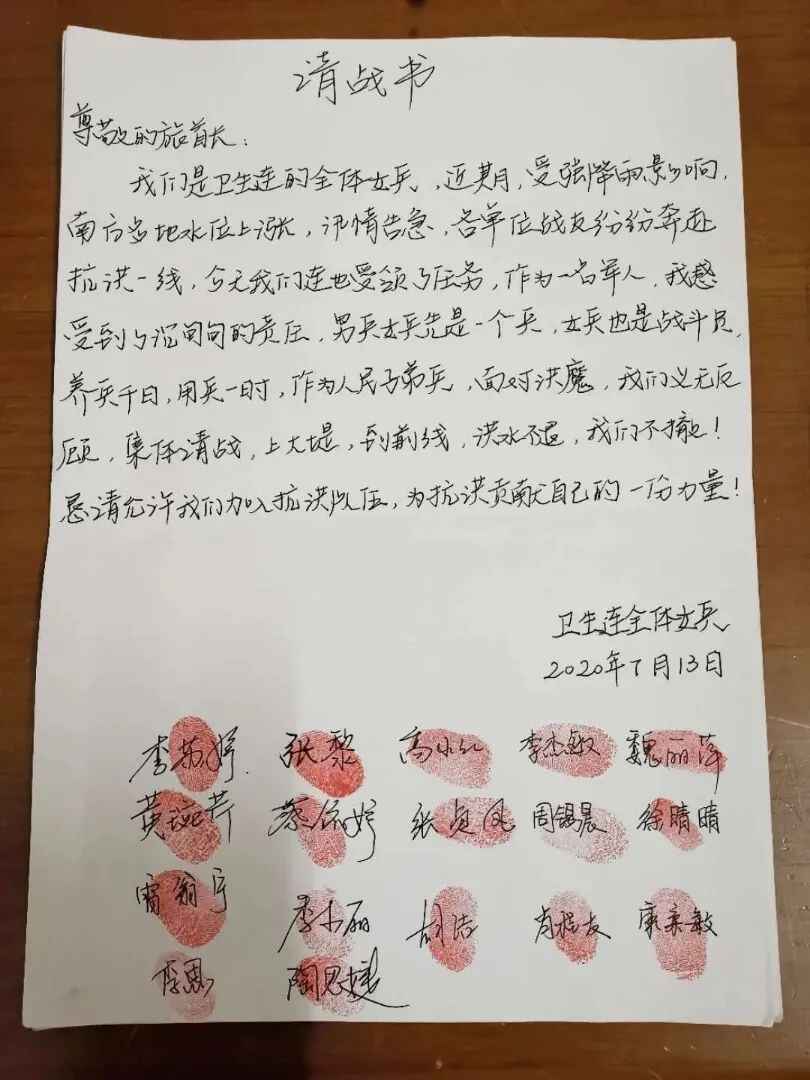 请战书
尊敬的旅首长：
我们是卫生连的全体女兵，近期，受强降雨影响，
南方多地水位上涨，汛情告急，各单位战友纷纷奔赴
抗洪一线，今天我们连也受领了任务，作为一名军人，我感
受到了沉甸甸的责任，男兵女兵先是一个兵，女兵也是战斗员，
养兵千日，用兵一时，作为人民子弟兵，面对洪魔，我们义无反
顾，集体请战，上大堤，到前线，洪水不退，我们不撤！
恳请允许我们加入抗洪队伍，为抗洪贡献自己的一份力量！
卫生连全体女兵
2020年7月13日
张黎 李杰敏 魏丽萍
张贞凤 周锡晨 徐晴晴
李小丽 胡洁 康柔敏
李思 陶思媛